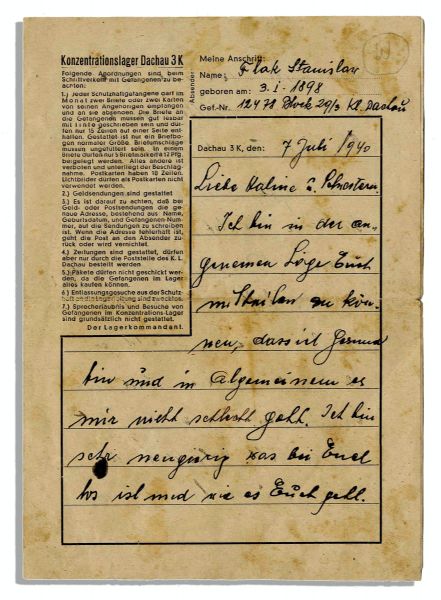 Konzentrationslager Dachau 3 K
Folgende Anordnungen sind beim
Schriftverkehr mit Gefangenen zu be-
achten:
1.) Jeder Schutzhaftgefangene darf im
Monat zwei Briefe oder zwei Karten
von seinen Angehörigen empfangen
und an sie absenden. Die Briefe an
die Gefangenen müssen gut lesbar
mit Tinte geschrieben sein und dür-
fen nur 15 Zeilen auf einer Seite ent-
halten. Gestattet ist nur ein Briefbo-
gen normaler Größe. Briefumschläge
müssen ungefüttert sein. In einem
Briefe dürfen nur 5 Briefmarken à 12 Pfg.
beigelegt werden. Alles andere ist
verboten und unterliegt der Beschlag-
nahme. Postkarten haben 10 Zeilen.
Lichtbilder dürfen als Postkarten nicht
verwendet werden.
2.) Geldsendungen sind gestattet
3.) Es ist darauf zu achten, daß bei
Geld- oder Postsendungen die ge-
naue Adresse, bestehend aus: Name,
Geburtsdatum, und Gefangenen-Num-
mer, auf die Sendungen zu schreiben
ist. Wenn die Adresse fehlerhaft ist,
geht die Post an den Absender zu-
rück oder wird vernichtet.
4.) Zeitungen sind gestattet, dürfen
aber nur durch die Poststelle des K. L.
Dachau bestellt werden
5.) Pakete dürfen nicht geschickt wer-
den, da die Gefangenen im Lager
alles kaufen können.
6.) Entlassungsgesuche aus der Schutz-
haft an die Lagerleitung sind zwecklos
7.) Sprecherlaubnis und Besuche von
Gefangenen im Konzentrations-Lager
sind grundsätzlich nicht gestattet.
Der Lagerkommandant.
Absender
Meine Anschrift:
Name Flak Stanislaw
geboren am: 3. I. 1898
Gef.-Nr. 12478 Block 29/3 Kl. Dachau
Dachau 3 K, den: 7 Juli 1940
Liebe Haline u.
Ich bin in der an-
genemen Lage Euch
zu kön-
nen, dass ich Gesund
bin und in algemeinem es
mir nicht schlecht geht. Ich bin
sehr neugierig was bei Euch
los ist und wie es Euch geht.